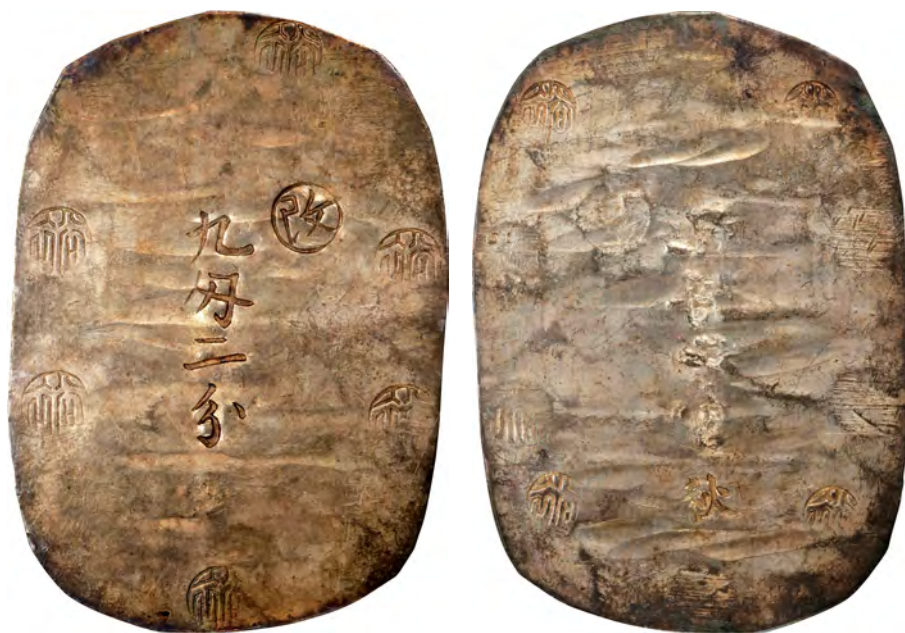 改
九匁二分
秋